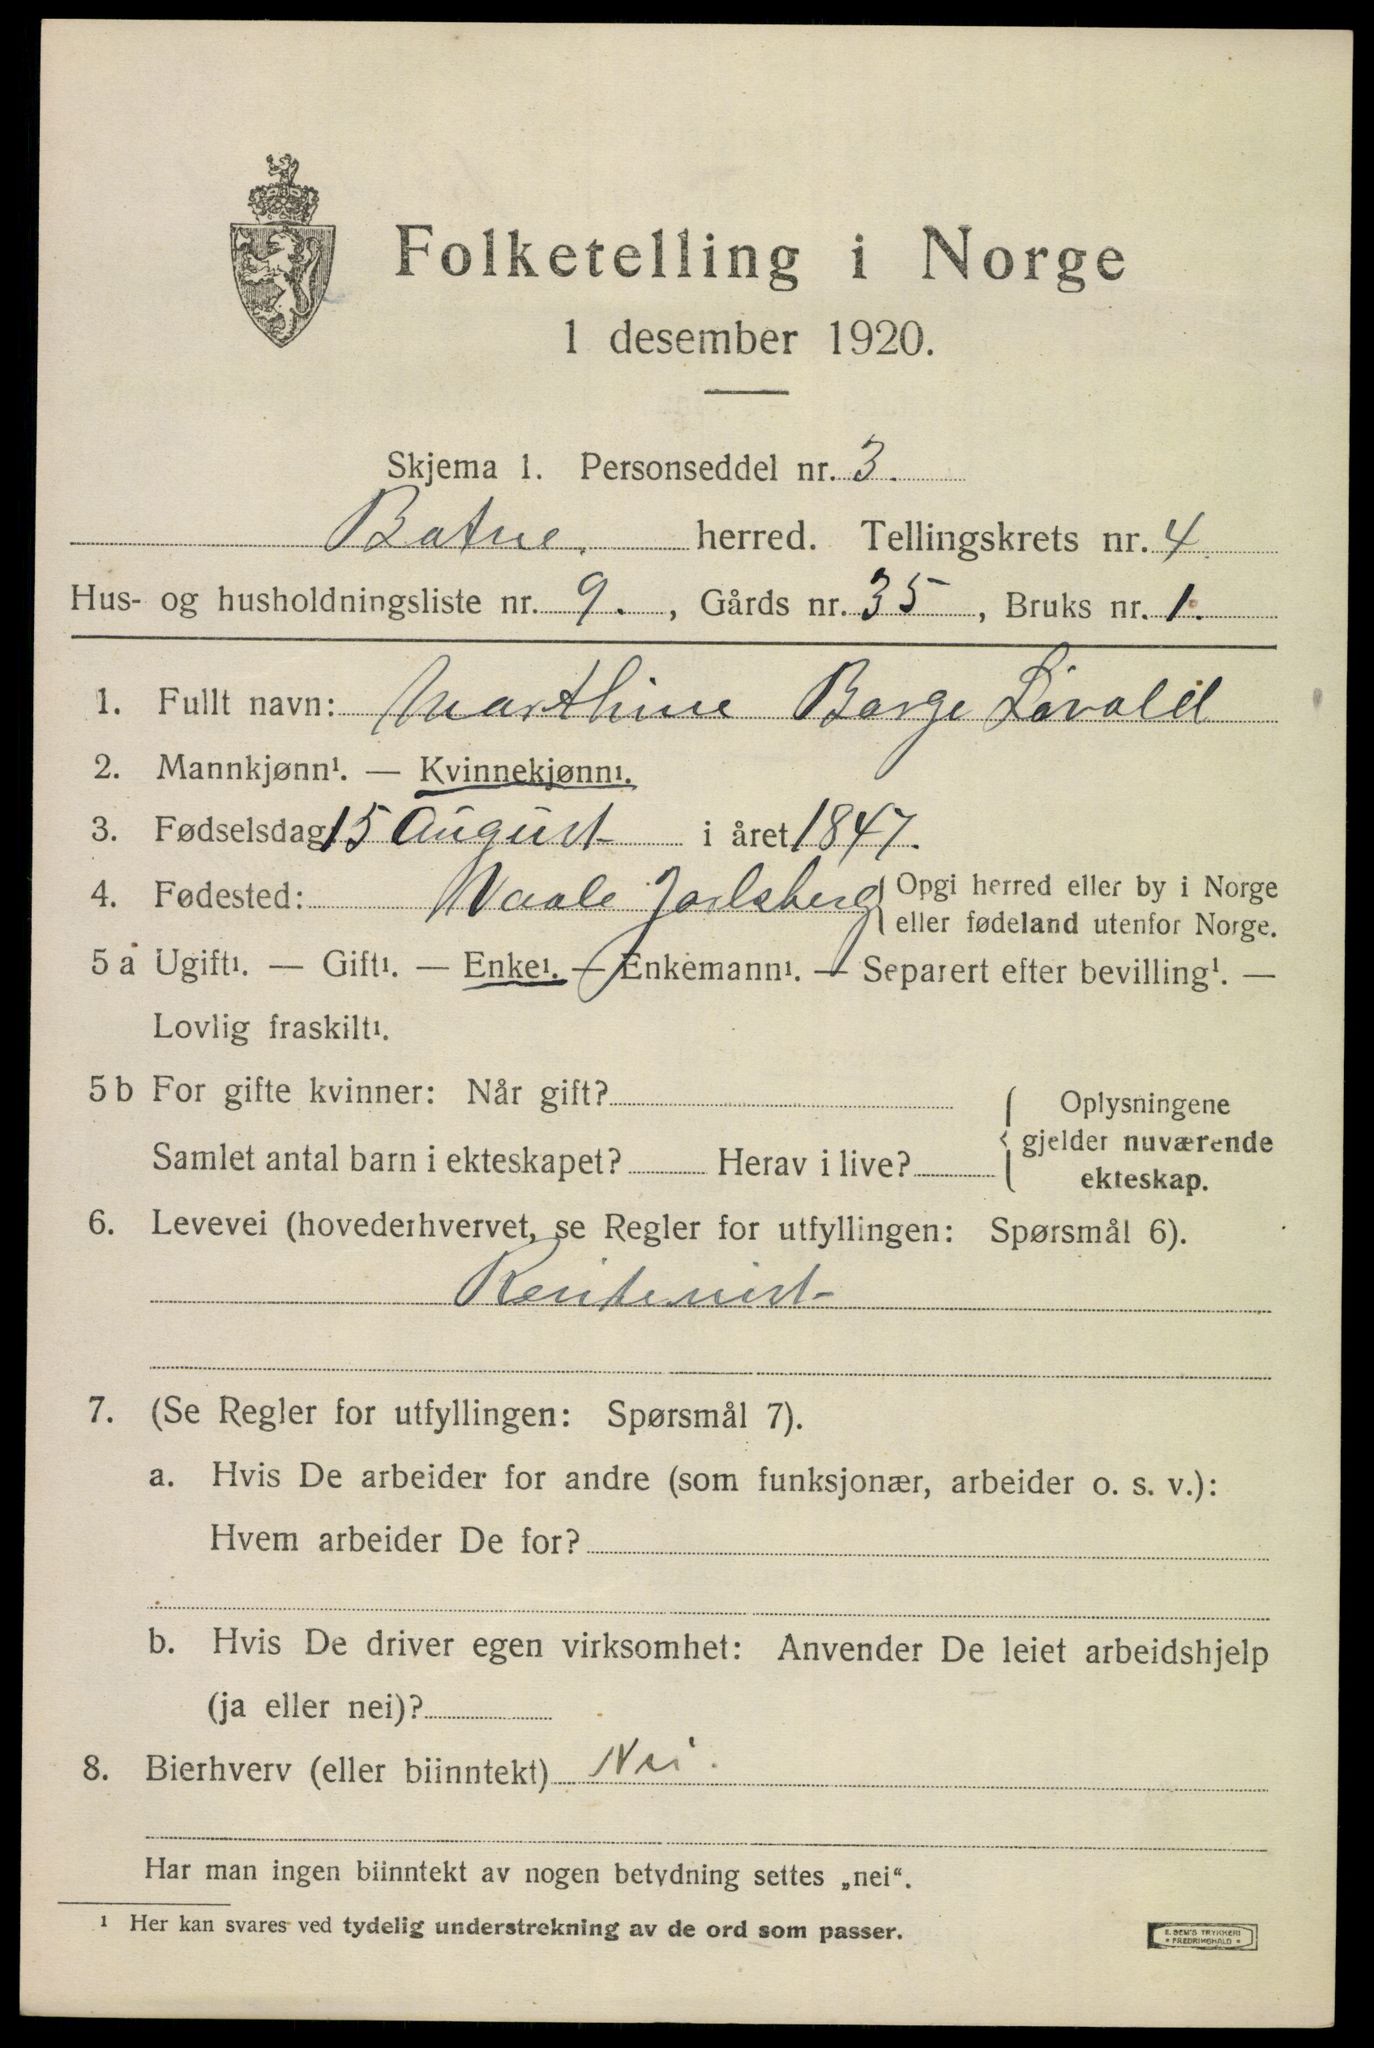 Folketelling i Norge
1 desember 1920.
Skjema 1. Personseddel nr. 3.
Botne. herred. Tellingskrets nr. 4.
Hus- og husholdningsliste nr. 9. , Gårds nr. 35 , Bruks nr. 1.
1. Fullt navn: Marthine Borge Løvald
2. Mannkjønn¹. — Kvinnekjønn¹.
3. Fødselsdag 15 August i året 1847.
4. Fødested: Vaale Jarlsberg { Opgi herred eller by i Norge
eller fødeland utenfor Norge.
5 a Ugift¹. — Gift¹. — Enke¹. — Enkemann¹. — Separert efter bevilling¹. —
Lovlig fraskilt¹.
5 b For gifte kvinner: Når gift?
Samlet antal barn i ekteskapet? Herav i live?
Oplysningene
gjelder nuværende
ekteskap.
6. Levevei (hovederhvervet, se Regler for utfyllingen: Spørsmål 6).
Rentenist
7. (Se Regler for utfyllingen: Spørsmål 7).
a. Hvis De arbeider for andre (som funksjonær, arbeider o. s. v.):
Hvem arbeider De for?
b. Hvis De driver egen virksomhet: Anvender De leiet arbeidshjelp
(ja eller nei)?
8. Bierhverv (eller biinntekt) Nei.
Har man ingen biinntekt av nogen betydning settes „nei“.
¹ Her kan svares ved tydelig understrekning av de ord som passer.
E. SEM'S TRYKKERI
FREDRIKSHALD